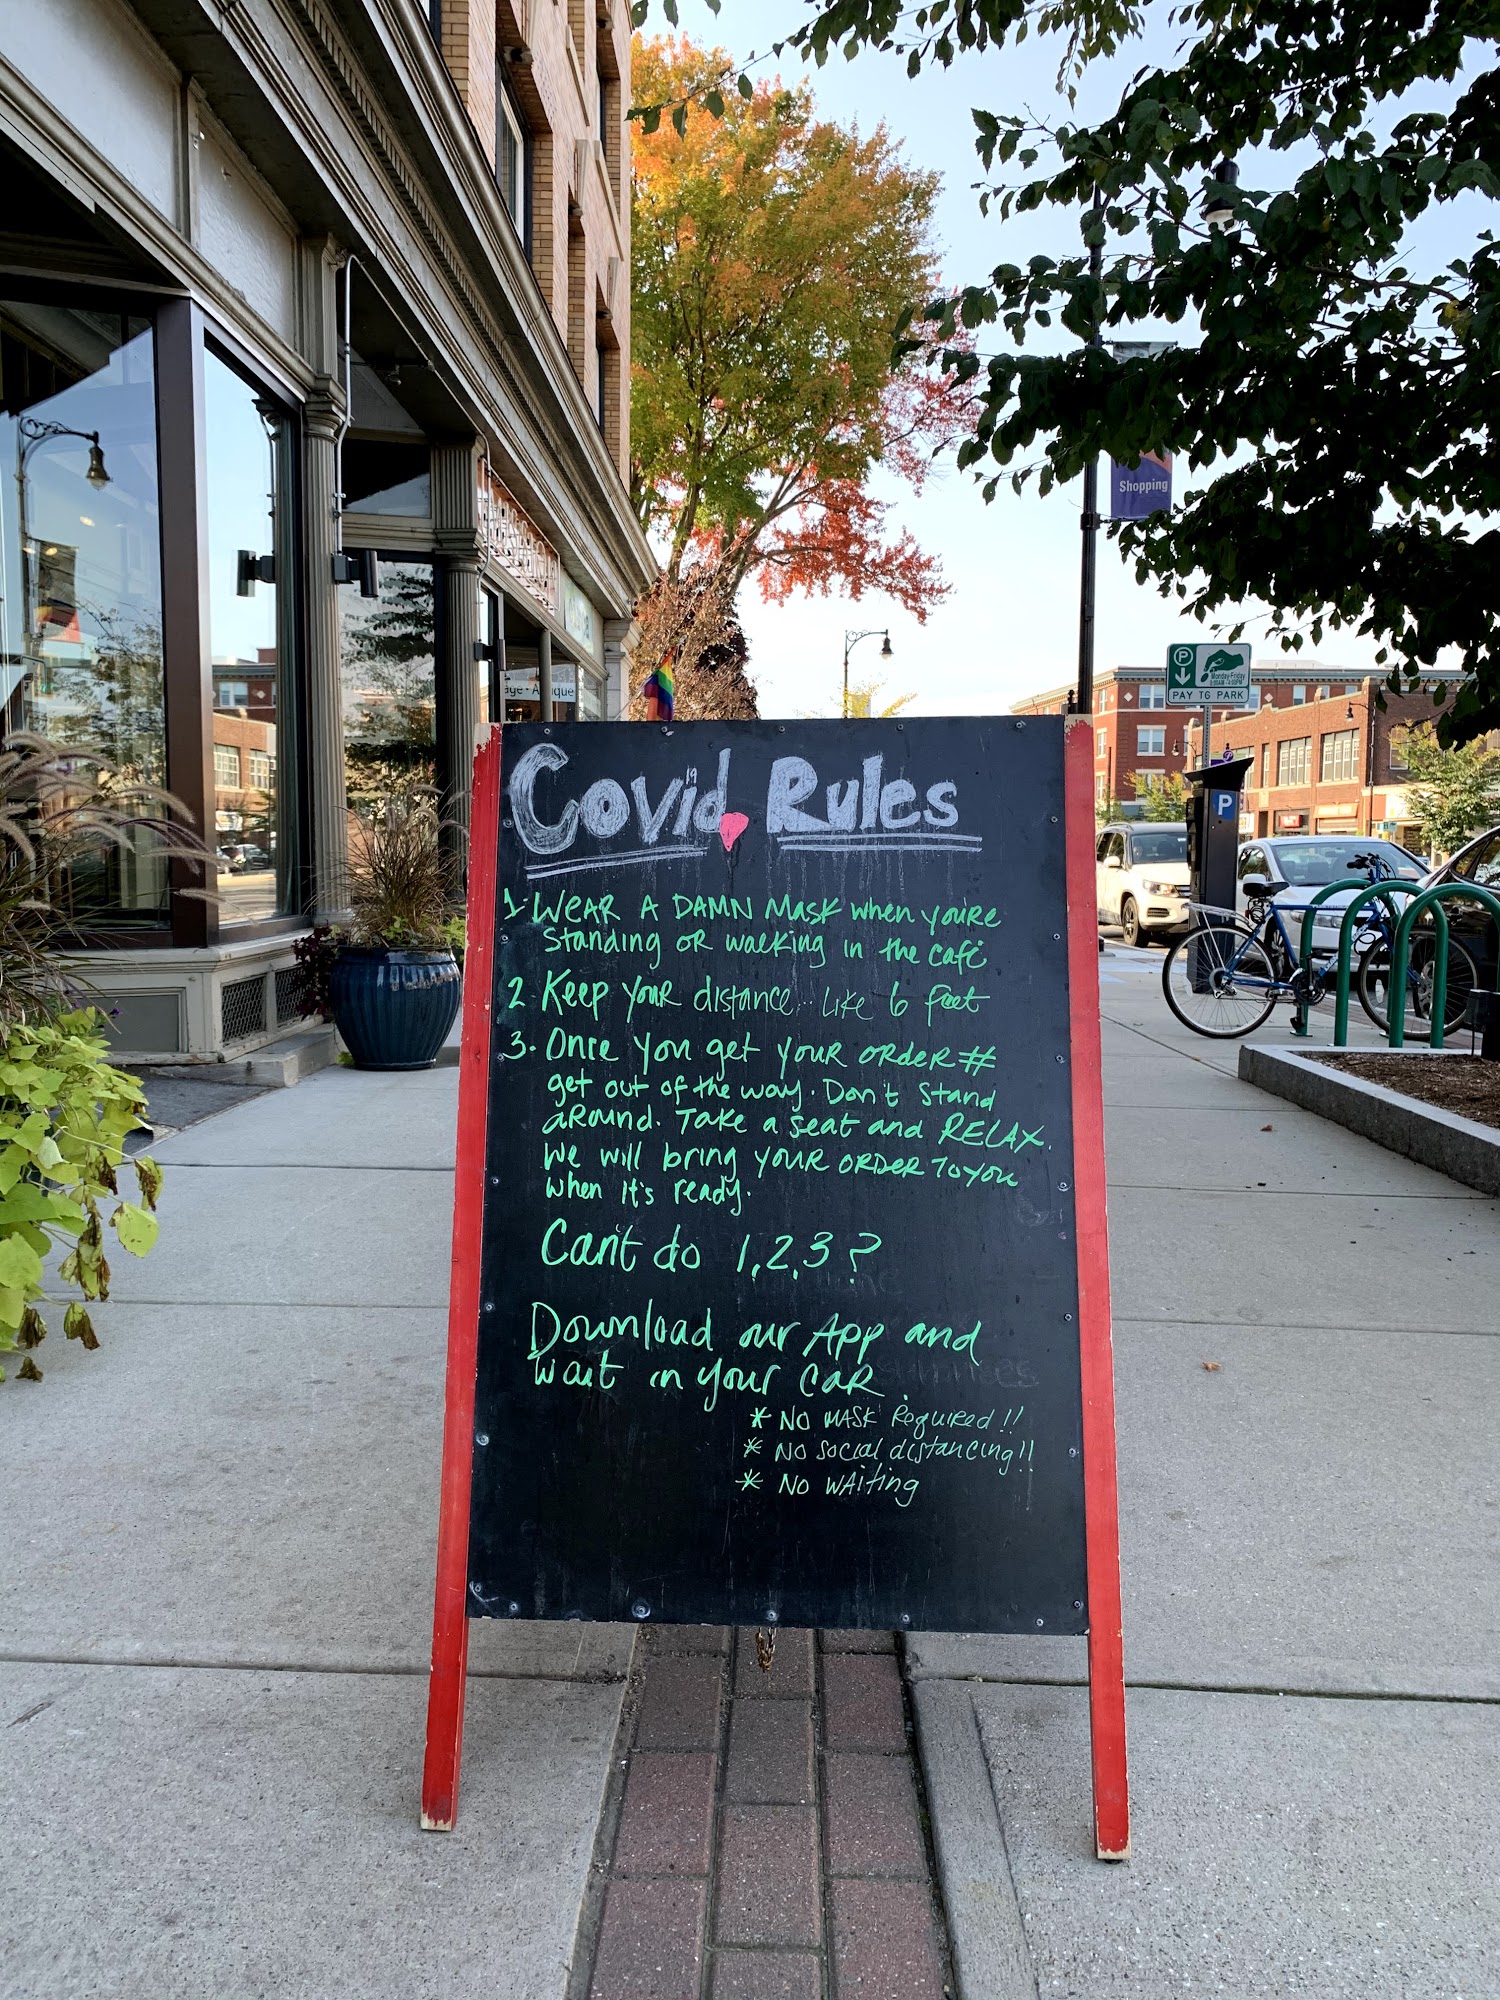 Shopping
P
Monday-Friday
PAY TO PARK
P
Covid 19 Rules
1. WEAR A DAMN MASK when you're
standing OR walking in the cafe
2. Keep YOUR distance.. Like 6 feet
3. Once you get your order #
get out of the way. Don't stand
around. Take a seat and RELAX.
We will bring YOUR ORDER TO YOU
when it's ready.
Can't do 1,2,3?
Download our App and
wait in your CAR.
* NO MASK Required!!
* NO social distancing!!
* NO WAiting